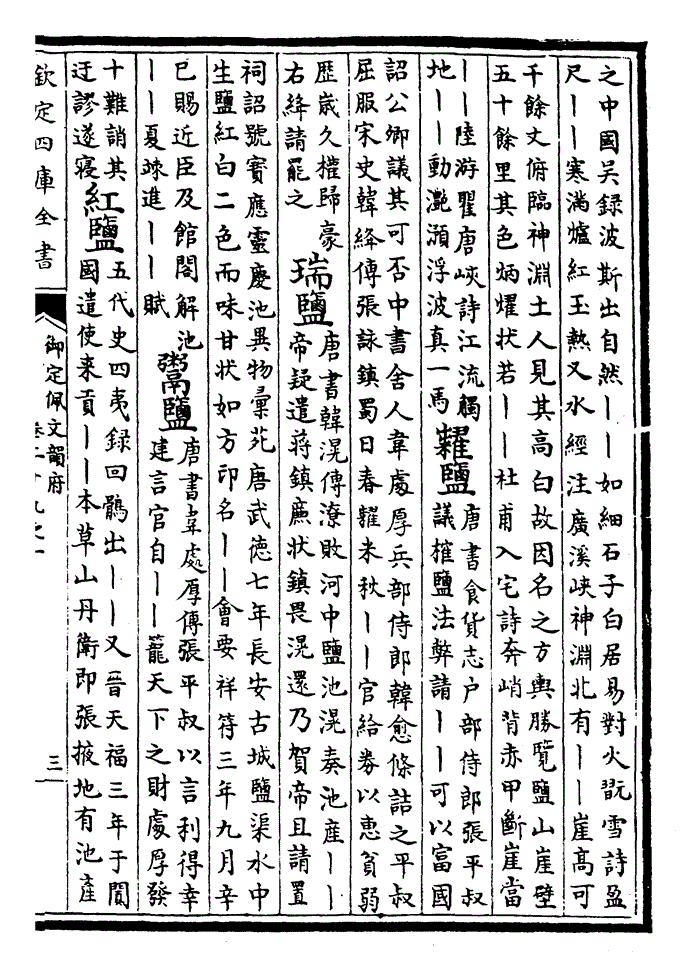 之中國吳録波斯出自然丨丨如細石子白居易對火翫雪詩盈
尺丨丨寒滿爐紅玉熱又水經注廣溪峽神淵北有丨丨崖高可
千餘丈俯臨神淵土人見其高白故因名之方輿勝覽鹽山崖壁
五十餘里其色炳燿狀若丨丨杜甫入宅詩奔峭背赤甲斷崖當
丨丨陸游瞿唐峽詩江流觸
地丨丨動灔澦浮波真一馬
糶鹽
唐書食貨志户部侍郎張平叔
議榷鹽法弊請丨丨可以富國
詔公卿議其可否中書舍人韋處厚兵部侍郎韓愈條詰之平叔
屈服宋史韓絳傳張詠鎮蜀日春糶米秋丨丨官給劵以惠貧弱
歴嵗久權歸豪
右絳請罷之
瑞鹽
唐書韓滉傳潦敗河中鹽池滉奏池產丨丨
帝疑遣蔣鎮廉状鎮畏滉還乃賀帝且請置
祠詔號寳應靈慶池異物彚苑唐武德七年長安古城鹽渠水中
生鹽紅白二色而味甘状如方印名丨丨會要祥符三年九月辛
巳賜近臣及館閣解池
丨丨夏竦進丨丨賦
鬻鹽
唐書韋處厚傳張平叔以言利得幸
建言官自丨丨籠天下之財處厚發
十難誚其
迂謬遂寝
紅鹽
五代史四夷録回鶻出丨丨又晉天福三年于闐
國遣使来貢丨丨本草山丹衛即張掖地有池產
欽定四庫全書
御定佩文韻府
卷二十九之一
三